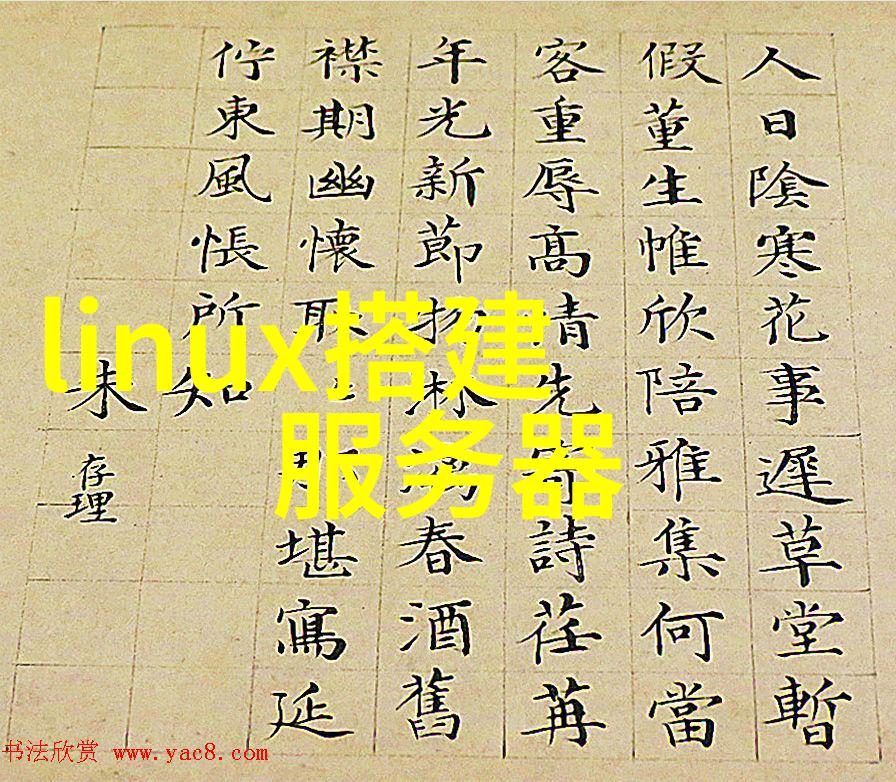 人日陰寒花事遲草堂暫
假董生帷欣陪雅集何當
客重辱高情先寄詩荏苒
年光新節物淋漓春酒舊
襟期幽懷取堪寫延
佇東風悵所知
朱
存理
linux搭建
服务器
书法欣赏 www.yac8.com